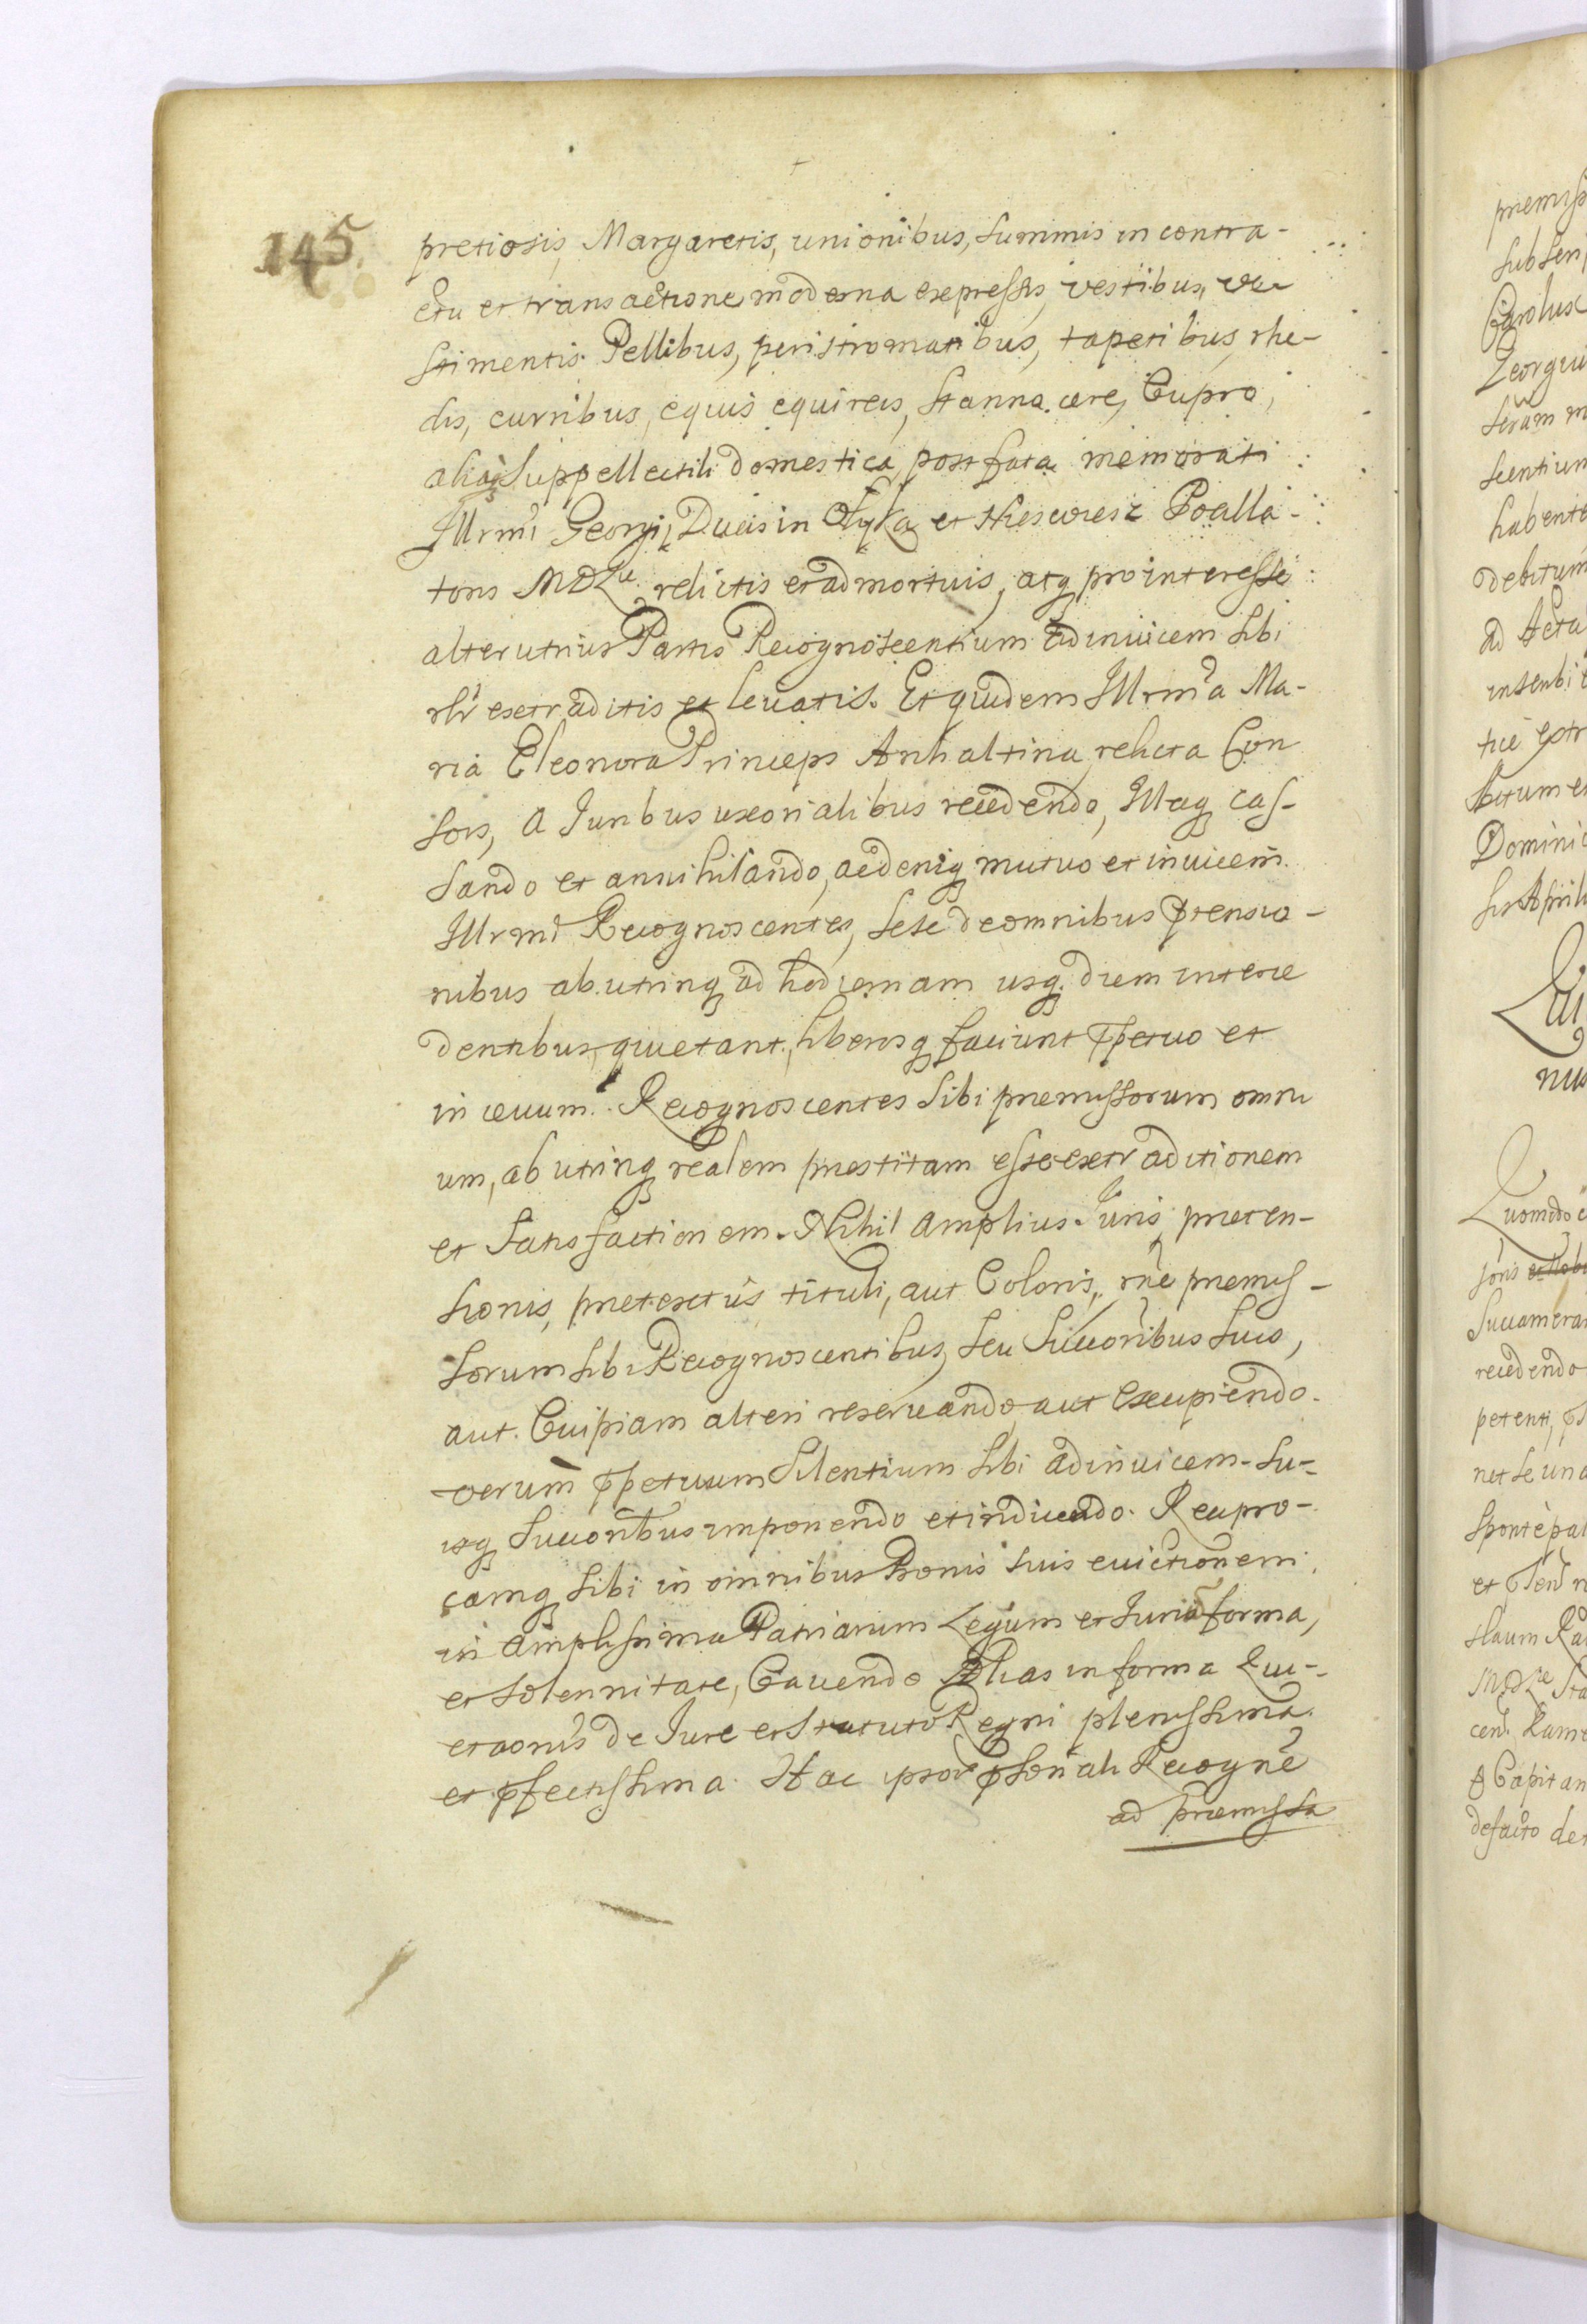 145
pretiosis, Margaretis, unionibus, summis in contra-
ctu et transactione moderna expressis, vestibus, ve-
stimentis. Pellibus, peristromatibus, tapetibus, rhe-
dis, curribus, equis equireis, Stanno. ære, Cupro,
aliaq Suppellectili domestica, post fata memorati
Illrmi Georgij Ducis in Olyka et Nieswiesz Poalla-
toris MDLæ relictis et admortuis, atq pro interesse
alterutrius Partis Recognoscentium ad invicem sibi
rlr extraditis et levatis. Et quidem Illrma Ma-
ria Eleonora Princeps Anhaltina, relicta Con
sors, a Juribus uxorialibus recedendo, Illaq cas-
sando et annihilando, ac deniq mutuo et invicem
Illrmi Recognoscentes, sese de omnibus prensio-
nibus ab utrinq ad hodiernam usq diem interce
dentibus, quietant, liberosq faciunt ppetuo et
in ævum. Recognoscentes sibi præmissorum omni
um, ab utrinq realem præstitam esse extraditionem
et Satisfactionem. Nihil amplius Juris, præten-
sionis, prætextus tituli, aut Coloris, rne præmis-
sorum sibi Recognoscentibus, seu Succoribus suis,
aut. Cuipiam alteri reservando, aut excipiendo.
verum ppetuum Silentium sibi ad invicem. su-
isq Succoribus imponendo et indicendo. Recipro-
camq sibi in omnibus Bonis suis evictionem
in amplissima Patriarum Legum et Juriū forma,
et solennitate, Cavendo Alias in forma Qui-
etaonis de Jure et Statuto Regni plenissima.
et pfectissima. Hac ipsor psonali Recogne
ad præmissa
præmiss
subscri
Carolus
Georgiu
scentium
habente
debitum
ad Acta
inscribi
Dominic
nus
Quomodo
recedendo
petenti,
net se una
Capitan
de facto